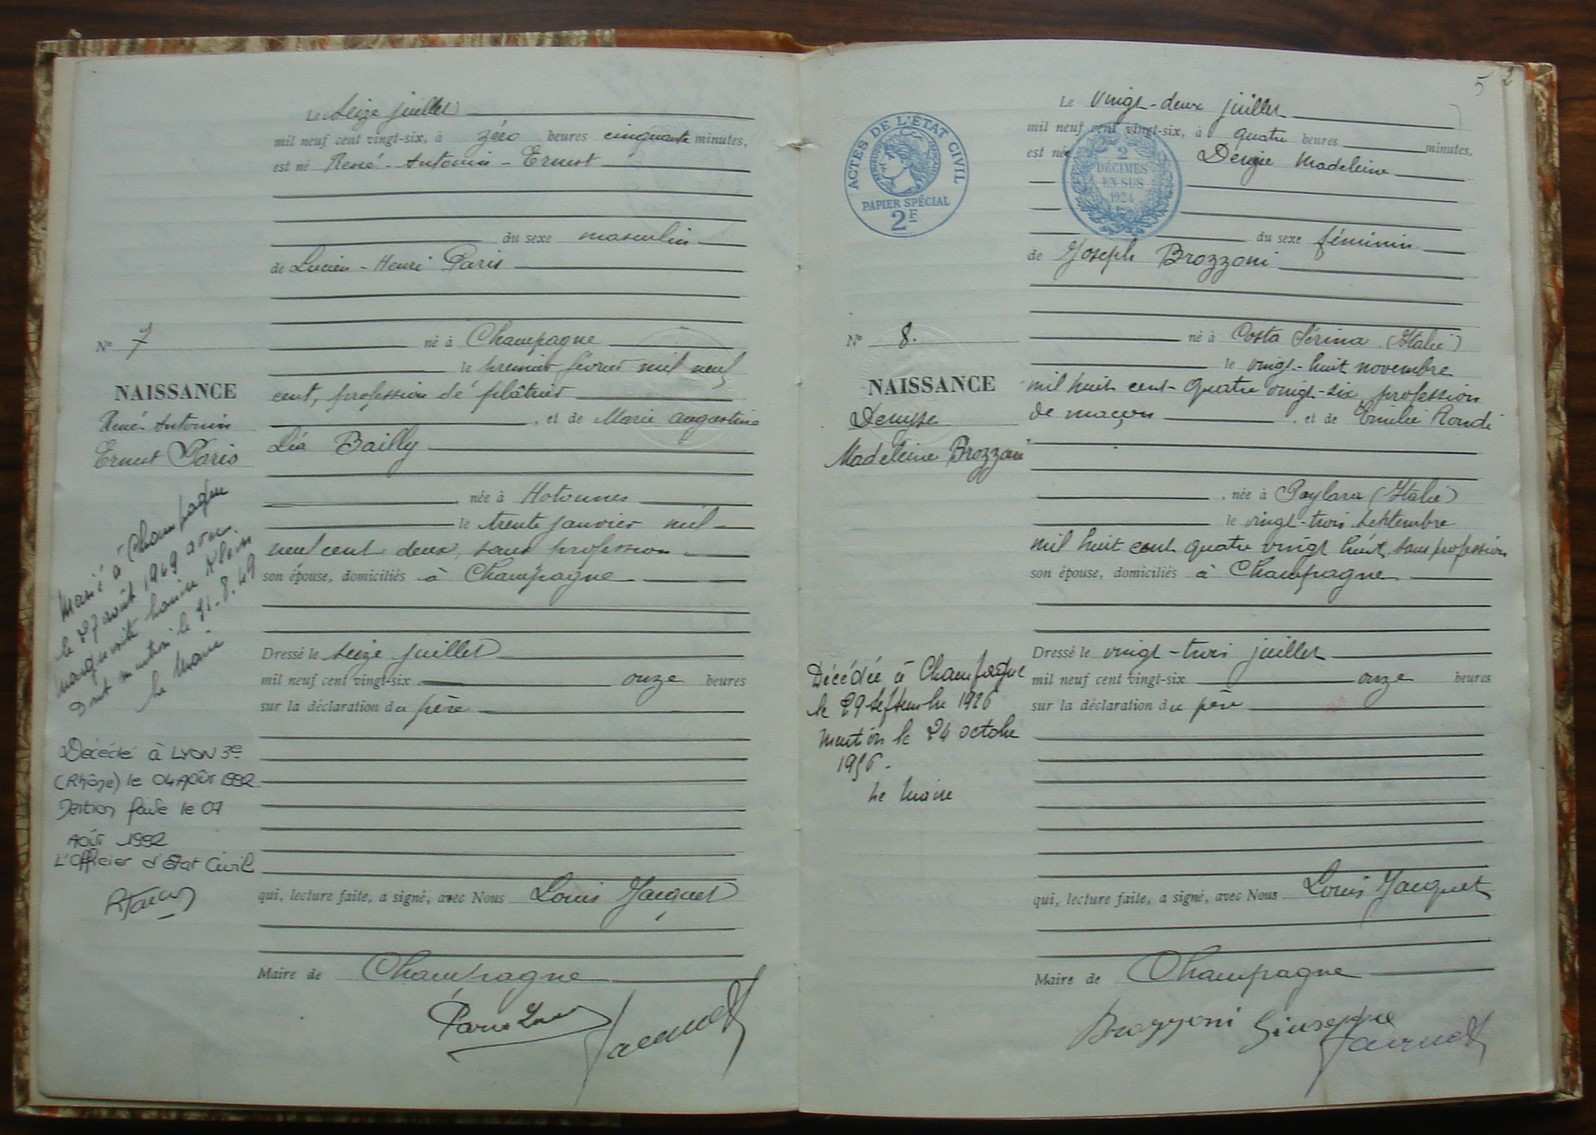 Le Seize juillet
mil neuf cent vingt-six, à zéro heures cinquante minutes,
est né René-Antonin-Ernest
du sexe masculin
de Lucien-Henri Paris
N° 7
né à Champagne
le premier février mil neuf
NAISSANCE
cent, profession de plâtrier
René-Antonin
, et de Marie augustine
Ernest Paris
Léa Bailly
née à Hotonnes
le trente janvier mil
neuf cent deux, sans profession
son épouse, domiciliés à Champagne
Marié à Champagne
le 27 août 1949 avec
Dressé le Seize juillet
mil neuf cent vingt-six onze heures
sur la déclaration du père
le Maire
Décédé à LYON 3e
(Rhône) le 04 Août 1992
faite le 07
Août 1992
L'Officier d'Etat Civil
qui, lecture faite, a signé, avec Nous Louis Jacquet
Maire de Champagne
5 2
Le Vingt-deux juillet
mil neuf cent vingt-six, à quatre heures minutes,
est née Denyse Madeleine
ACTES DE L'ETAT CIVIL
PAPIER SPÉCIAL
2F
2
DÉCIMES
EN SUS
1924
du sexe féminin
de Joseph Brozzoni
N° 8.
né à Costa Sérina (Italie)
le vingt-huit novembre
NAISSANCE
mil huit cent quatre vingt-six, profession
Denyse
de maçon , et de Emilie Rondi
Madeleine Brozzoni
née à (Italie)
le vingt-trois septembre
mil huit cent quatre vingt huit, sans profession
son épouse, domiciliés à Champagne
Dressé le vingt-trois juillet
mil neuf cent vingt-six onze heures
sur la déclaration du père
Décédée à Champagne
le 29 septembre 1926
mention le 24 octobre
1956.
Le Maire
qui, lecture faite, a signé, avec Nous Louis Jacquet
Maire de Champagne
Brozzoni Giuseppe